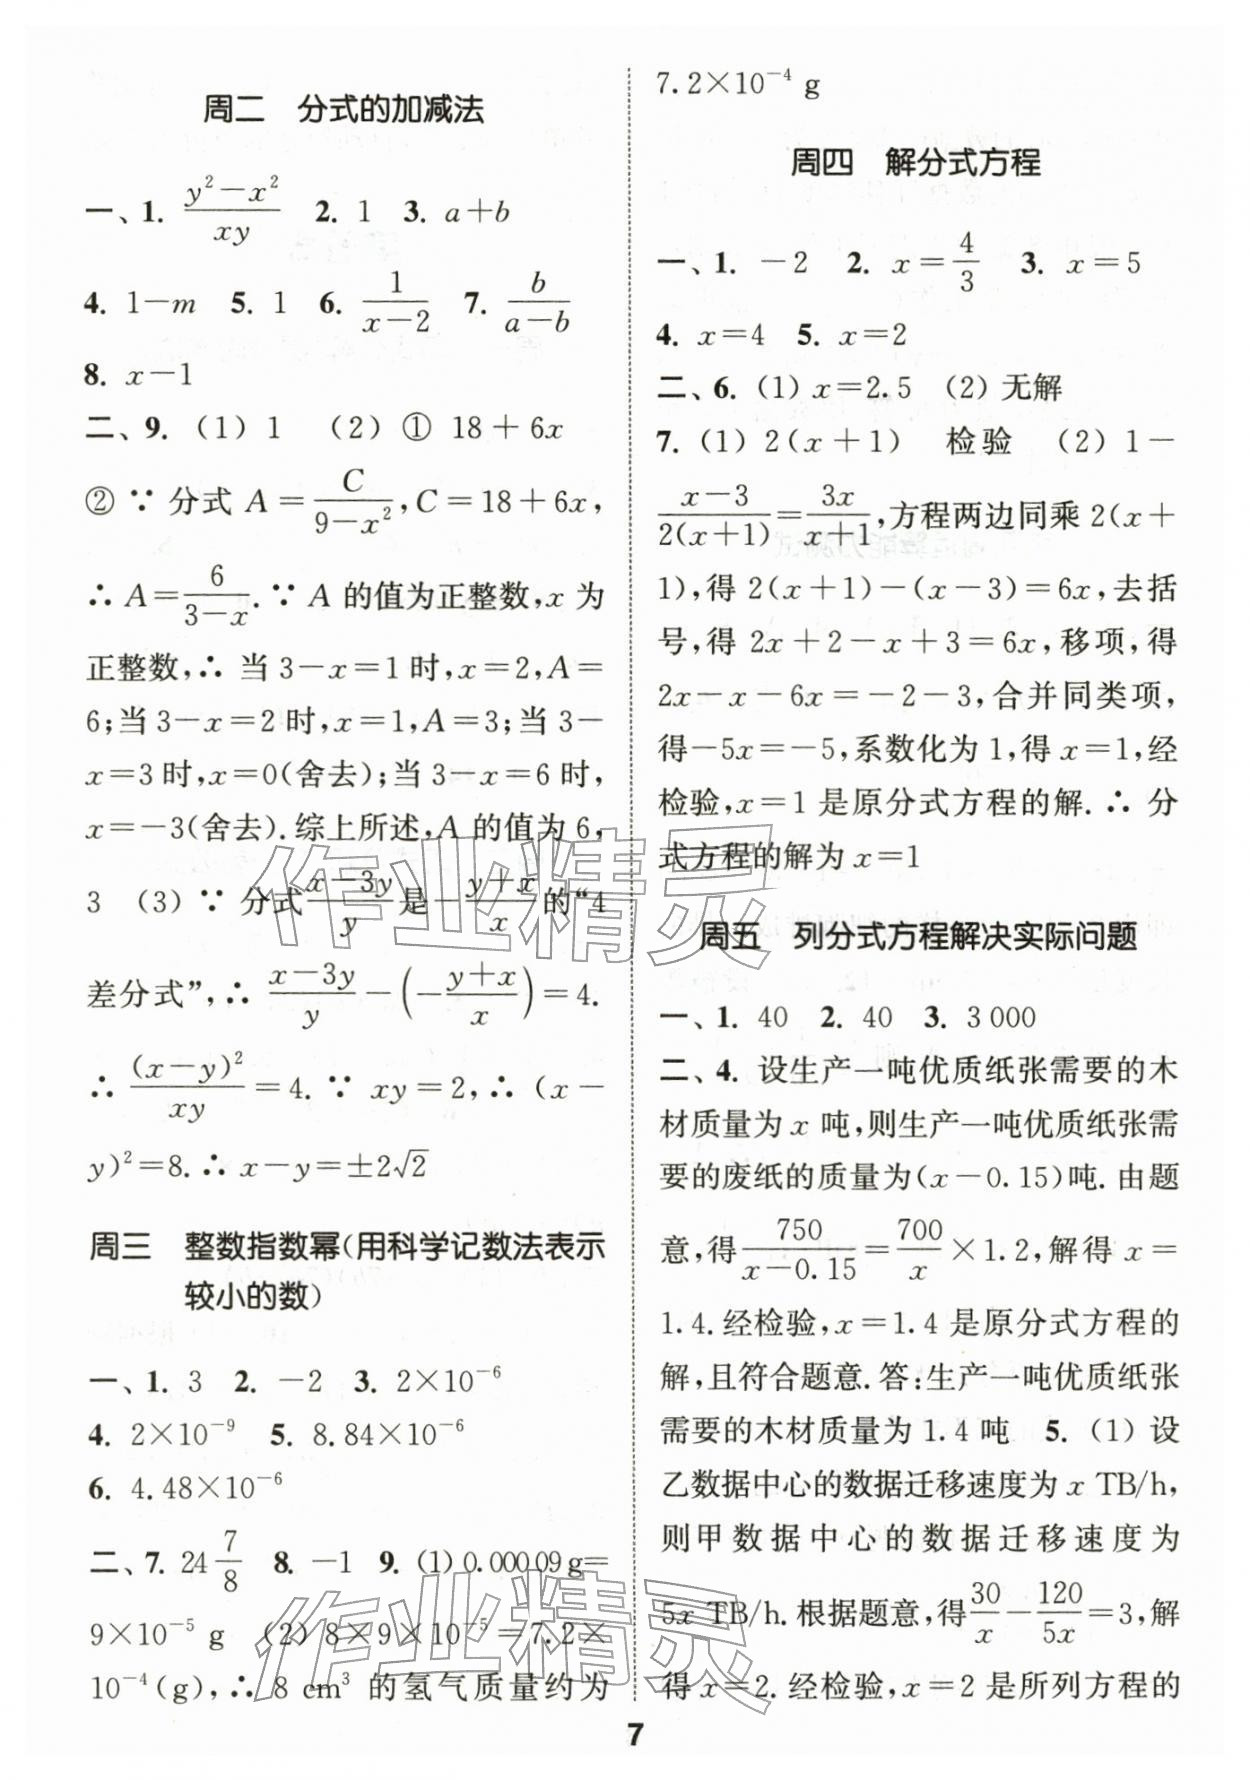 周二　分式的加减法
一、1. \frac{y²-x²}{xy}　2. 1　3. a+b
4. 1-m　5. 1　6. \frac{1}{x-2}　7. \frac{b}{a-b}
8. x-1
二、9. (1) 1　(2) ① 18+6x
② ∵ 分式 A=\frac{C}{9-x²},C=18+6x,
∴ A=\frac{6}{3-x}.∵ A 的值为正整数,x 为
正整数,∴ 当 3-x=1 时,x=2,A=
6;当 3-x=2 时,x=1,A=3;当 3-
x=3 时,x=0(舍去);当 3-x=6 时,
x=-3(舍去).综上所述,A 的值为 6,
3　(3) ∵ 分式\frac{x-3y}{y}是-\frac{y+x}{x}的“4
差分式”,∴ \frac{x-3y}{y}-(-\frac{y+x}{x})=4.
∴ \frac{(x-y)²}{xy}=4. ∵ xy=2,∴ (x-
y)²=8.∴ x-y=±2√2
周三　整数指数幂(用科学记数法表示
较小的数)
一、1. 3　2. -2　3. 2×10⁻⁶
4. 2×10⁻⁹　5. 8.84×10⁻⁶
6. 4.48×10⁻⁶
二、7. 24\frac{7}{8}　8. -1　9. (1)0.00009 g=
9×10⁻⁵ g　(2) 8×9×10⁻⁵=7.2×
10⁻⁴(g),∴ 8 cm³ 的氢气质量约为
7.2×10⁻⁴ g
周四　解分式方程
一、1. -2　2. x=\frac{4}{3}　3. x=5
4. x=4　5. x=2
二、6. (1) x=2.5　(2) 无解
7. (1) 2(x+1)　检验　(2) 1-
\frac{x-3}{2(x+1)}=\frac{3x}{x+1},方程两边同乘 2(x+
1),得 2(x+1)-(x-3)=6x,去括
号,得 2x+2-x+3=6x,移项,得
2x-x-6x=-2-3,合并同类项,
得-5x=-5,系数化为 1,得 x=1,经
检验,x=1 是原分式方程的解.∴ 分
式方程的解为 x=1
周五　列分式方程解决实际问题
一、1. 40　2. 40　3. 3 000
二、4. 设生产一吨优质纸张需要的木
材质量为 x 吨,则生产一吨优质纸张需
要的废纸的质量为(x-0.15)吨.由题
意,得\frac{750}{x-0.15}=\frac{700}{x}×1.2,解得 x=
1.4.经检验,x=1.4 是原分式方程的
解,且符合题意.答:生产一吨优质纸张
需要的木材质量为 1.4 吨　5. (1) 设
乙数据中心的数据迁移速度为 x TB/h,
则甲数据中心的数据迁移速度为
5x TB/h.根据题意,得\frac{30}{x}-\frac{120}{5x}=3,解
得 x=2.经检验,x=2 是所列方程的
7
作业精灵
作业精灵